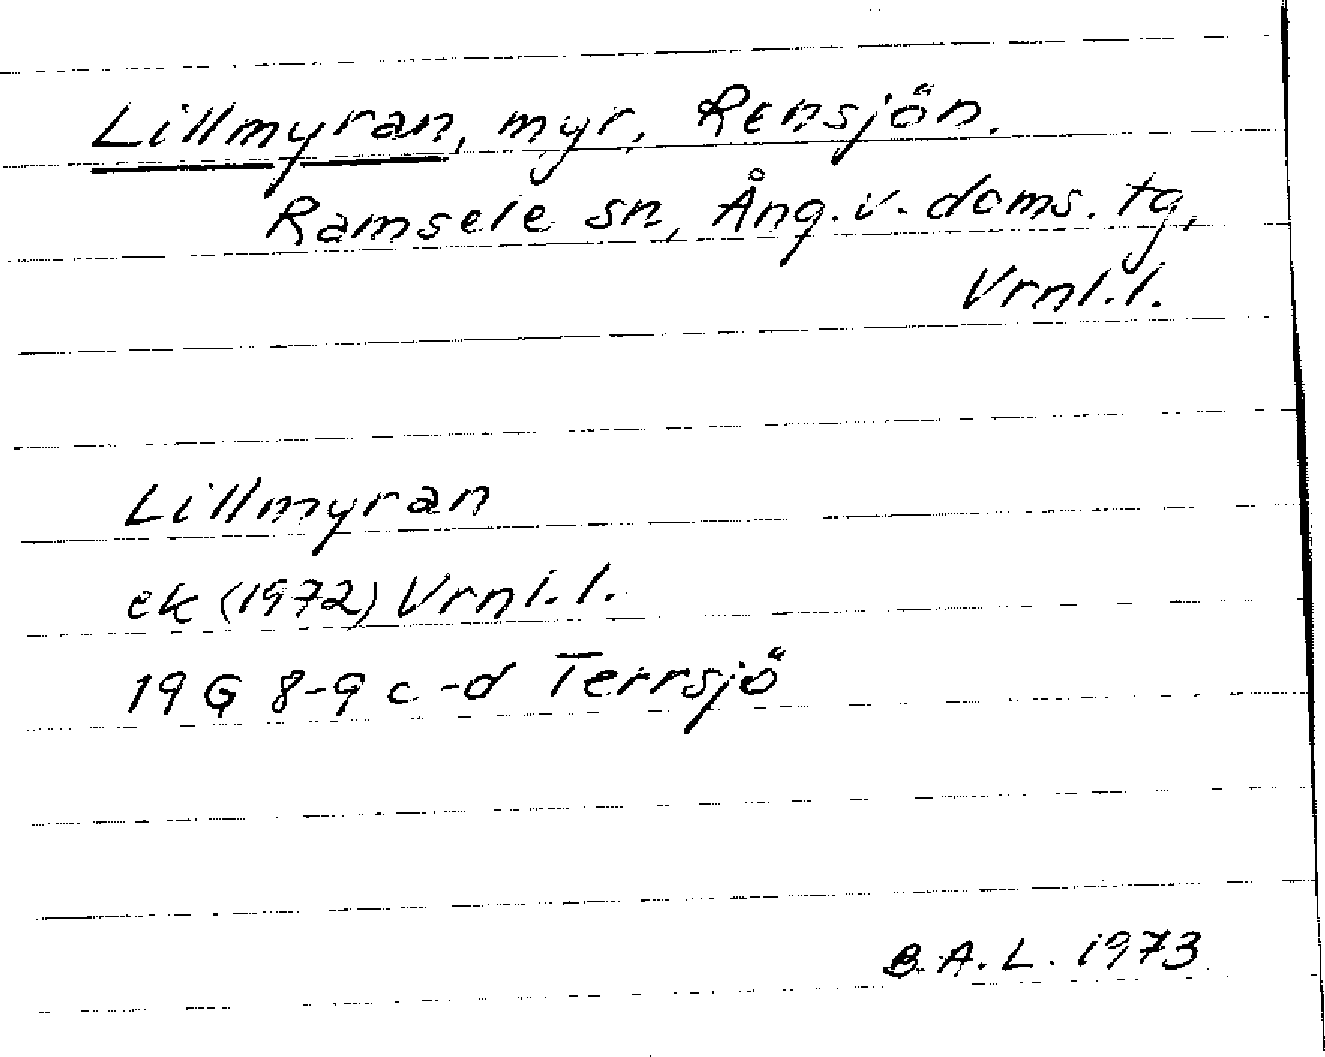 Lillmyran, myr, Rensjön.
Ramsele sn, Ång. v. doms. tg,
Vrnl.l.
Lillmyran
ek (1972) Vrnl.l.
19 G 8-9 c-d Terrsjö
B.A.L. 1973